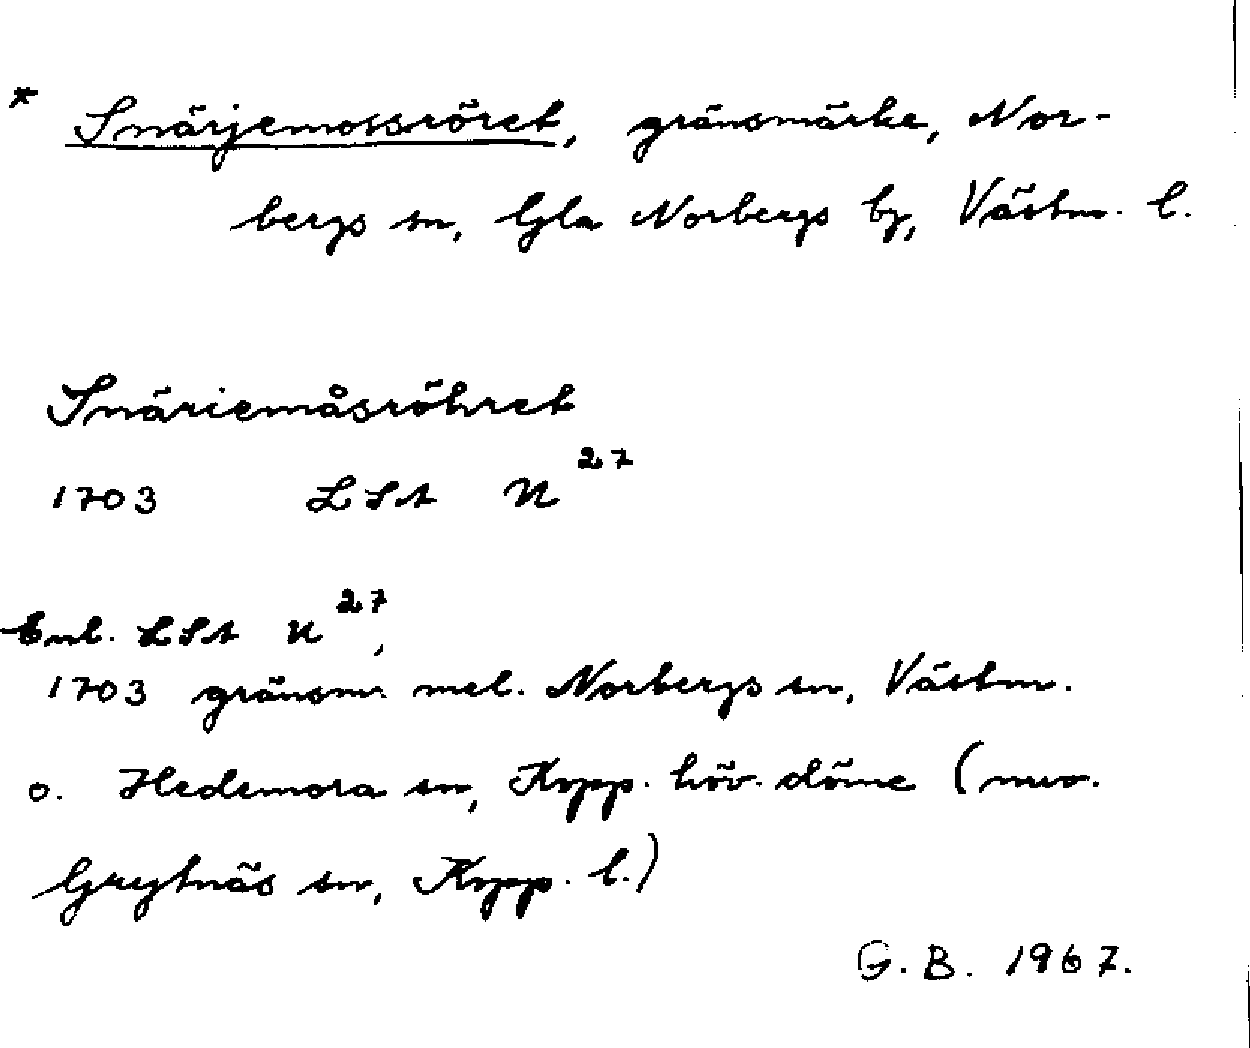 * Snärjemossröret, gränsmärke, Nor-
bergs sn, Gla Norbergs by, Västm. l.
Snäriemåsröhret
1703 LSA U 27
Enl. LSA U 27,
1703 gränsm. mel. Norbergs sn, Västm.
o. Hedemora sn, Kopp. höv. döme (nuv.
Grytnäs sn, Kopp. l.)
G. B. 1967.